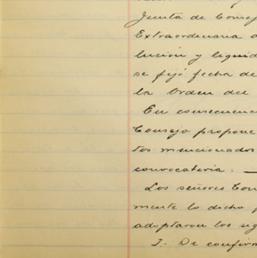 Junta de Consej
Extraordinaria d
lución y liquid
se fijó fecha de
la Orden del
En consecuenc
Consejo propone
tos mencionados
convocatoria. —
Los señores Con
mente lo dicho p
adoptaron los sig
I.- De confirm